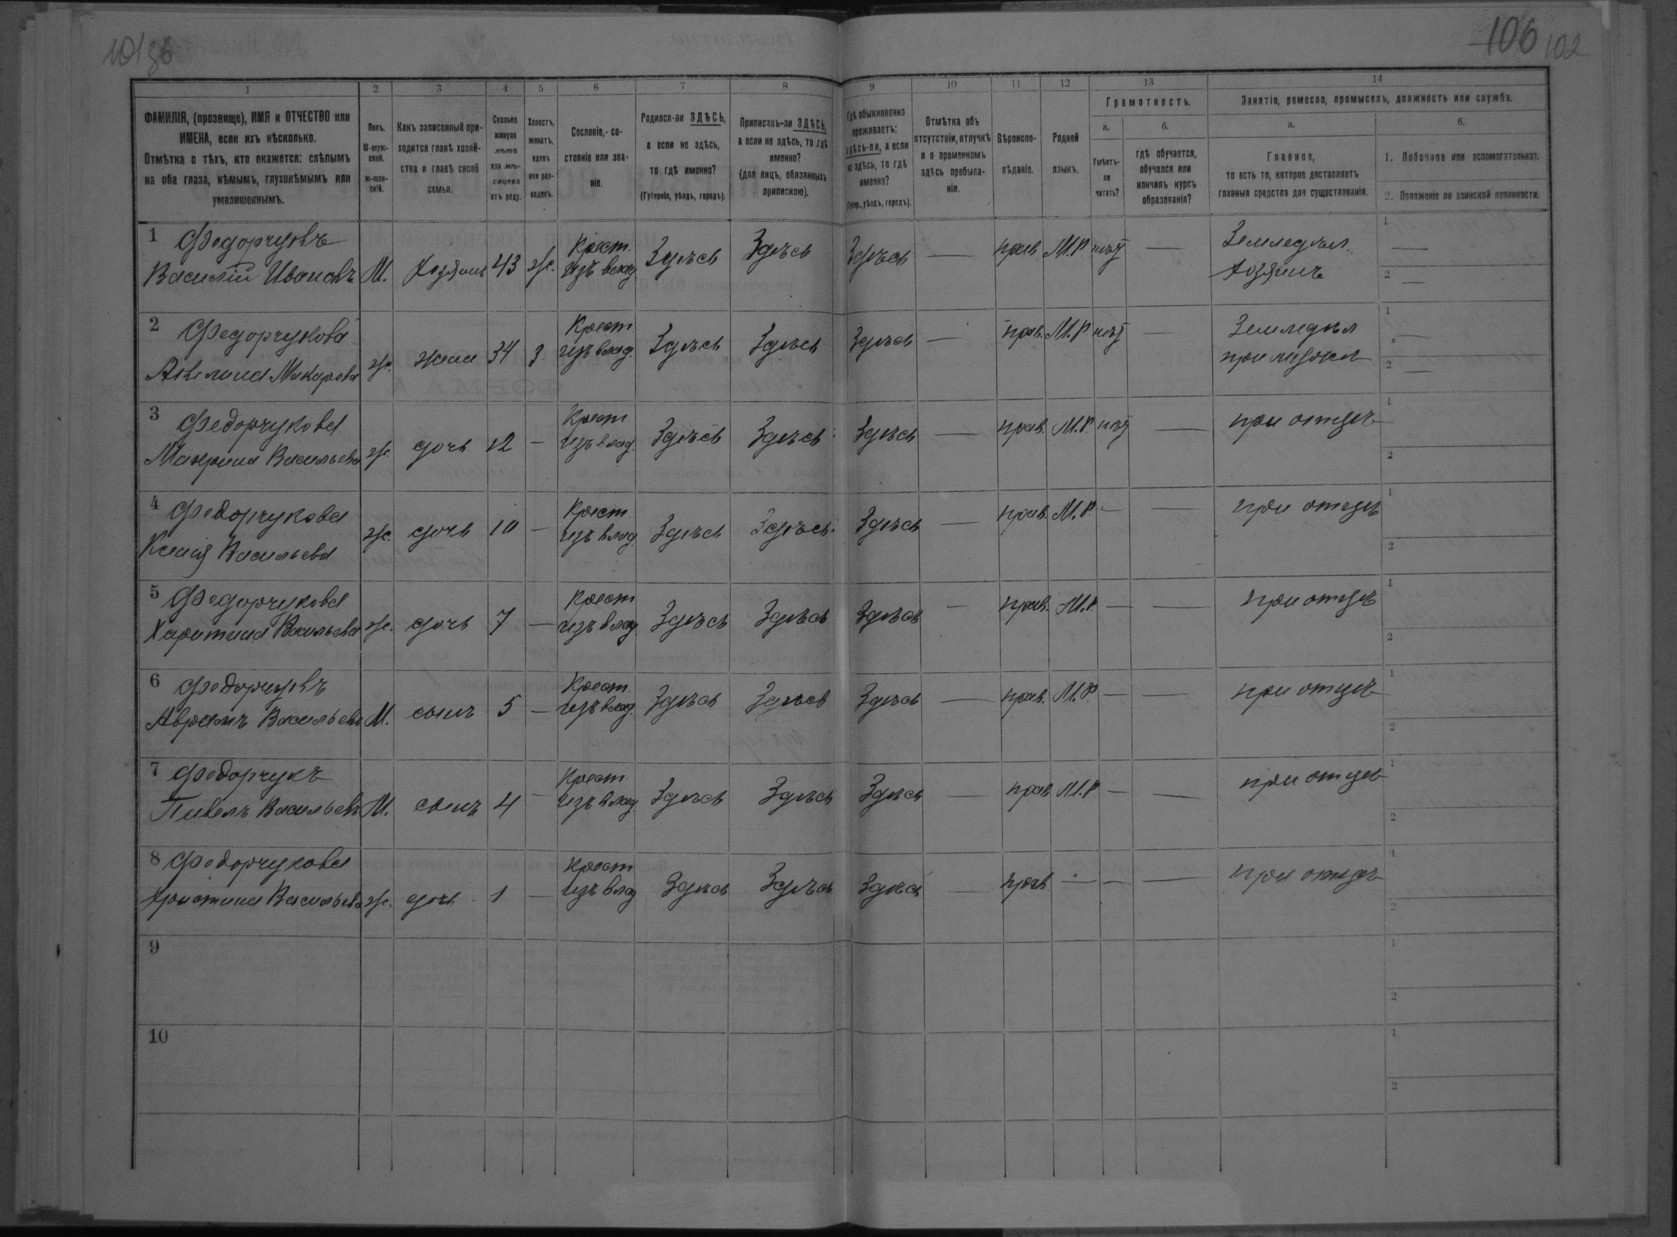 106 102
1 2 3 4 5 6 7 8 9 10 11 12 13 14
ФАМИЛІЯ, (прозвище), ИМЯ и ОТЧЕСТВО или
ИМЕНА, если ихъ нѣсколько.
Отмѣтка о тѣхъ, кто окажется: слѣпымъ
на оба глаза, нѣмымъ, глухонѣмымъ или
умалишеннымъ.
Полъ.
М-муж-
ской.
Ж-жен-
скій.
Какъ записанный при-
ходится главѣ хозяй-
ства и главѣ своей
семьи.
Сколько
минуло
лѣтъ
или мѣ-
сяцевъ
отъ роду.
Холостъ,
женатъ,
вдовъ
или раз-
веденъ.
Сословіе, со-
стояніе или зва-
ніе.
Родился-ли ЗДѢСЬ,
а если не здѣсь,
то гдѣ именно?
(Губернія, уѣздъ, городъ).
Приписанъ-ли ЗДѢСЬ,
а если не здѣсь, то гдѣ
именно?
(для лицъ, обязанныхъ
припискою).
Гдѣ обыкновенно
проживаетъ:
здѣсь-ли, а если
не здѣсь, то гдѣ
именно?
(Губер., уѣздъ, городъ).
Отмѣтка объ
отсутствіи, отлучкѣ
и о временномъ
здѣсь пребыва-
ніи.
Вѣроиспо-
вѣданіе.
Родной
языкъ.
Грамотность.
а.
Умѣетъ-
ли
читать?
б.
гдѣ обучается,
обучался или
кончилъ курсъ
образованія?
Занятіе, ремесло, промыселъ, должность или служба.
а.
Главное,
то есть то, которое доставляетъ
главныя средства для существованія.
б.
1. Побочное или вспомогательное.
2. Положеніе по воинской повинности.
1 Федорчукъ Крест. Земледѣл.
Василій Ивановъ М. Хозяинъ 43 ж. изъ влад. Здѣсь Здѣсь Здѣсь — прав. М.Р — хозяинъ 1 — 2 —
2 Федорчукова Крест. Земледѣл
Макарова ж. жена 34 з. изъ влад. Здѣсь Здѣсь Здѣсь — прав. М.Р — 1 — 2 —
3 Федорчукова Крест
Макрина Васильева ж. дочь 12 — изъ влад. Здѣсь Здѣсь Здѣсь — прав. М.Р — при отцѣ 1 2
4 Федорчукова Крест
Ксенія Васильева ж. дочь 10 — изъ влад. Здѣсь Здѣсь Здѣсь — прав. М.Р — — при отцѣ 1 2
5 Федорчукова Крест
Харитина Васильева ж. дочь 7 — изъ влад Здѣсь Здѣсь Здѣсь — прав. М.Р — — при отцѣ 1 2
6 Федорчукъ Крест.
Аврамъ Васильевъ М. сынъ 5 — изъ влад. Здѣсь Здѣсь Здѣсь — прав. М.Р — — при отцѣ 1 2
7 Федорчукъ Крест
Павелъ Васильевъ М. сынъ 4 — изъ влад. Здѣсь Здѣсь Здѣсь — прав М.Р — — при отцѣ 1 2
8 Федорчукова Крест
Христина Васильева ж. дочь 1 — изъ влад Здѣсь Здѣсь Здѣсь — прав — — — при отцѣ 1 2
9 1 2
10 1 2